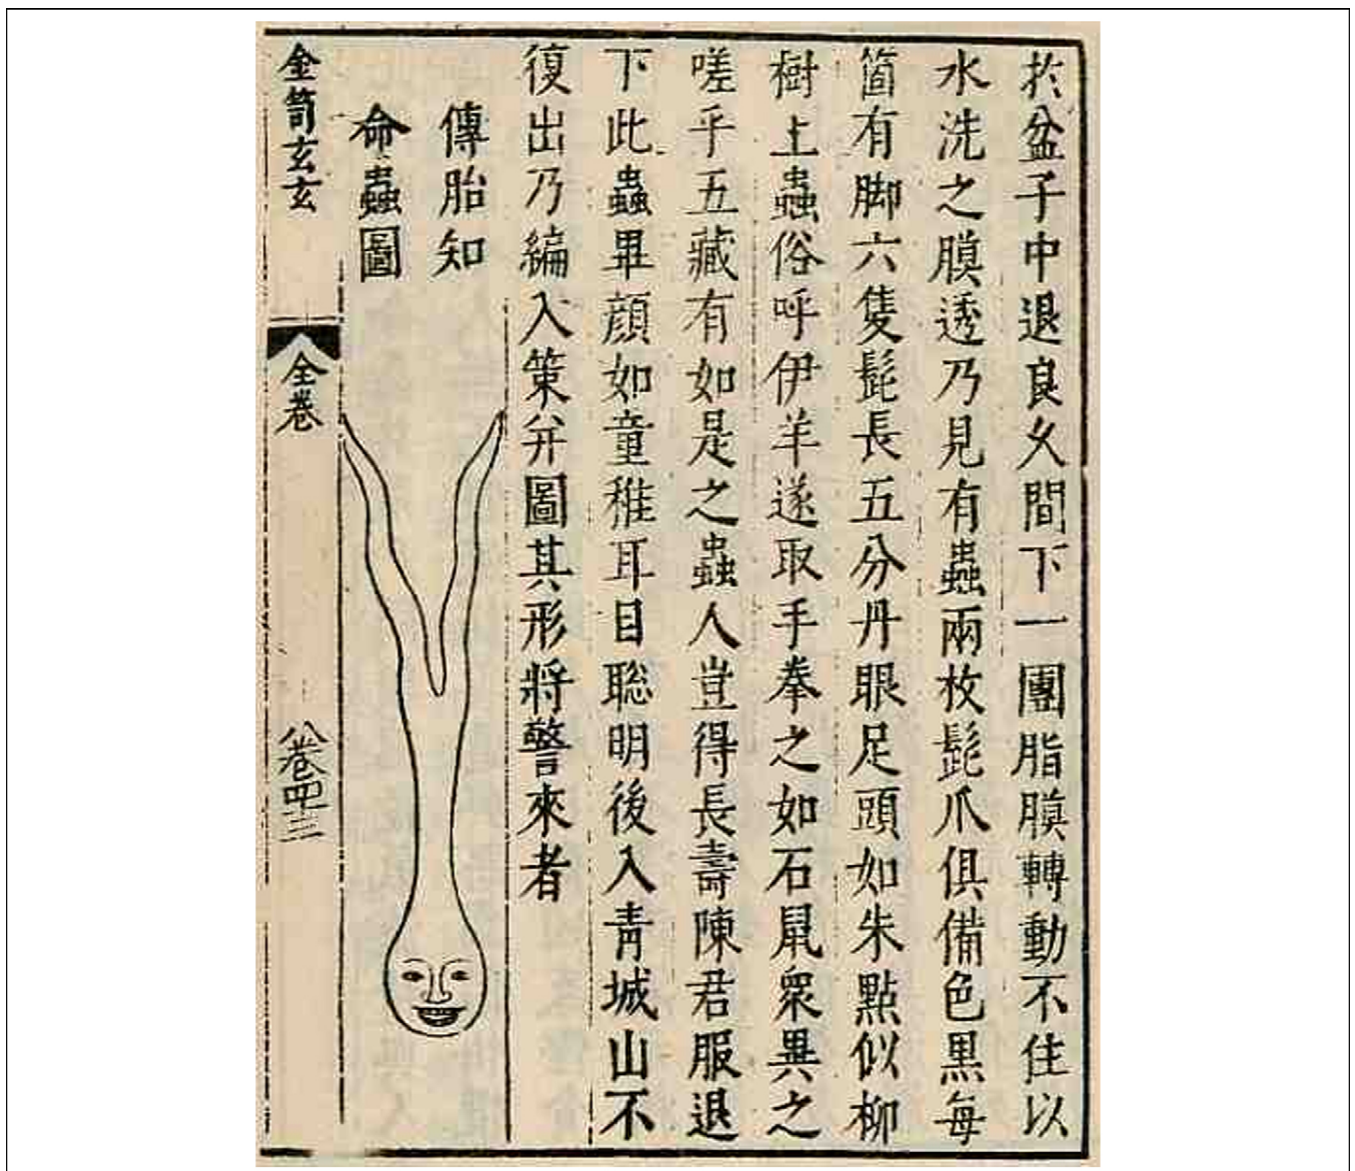 於盆子中退良久間下一團脂膜轉動不住以
水洗之膜透乃見有蟲兩枚髭爪俱備色黒每
箇有脚六隻髭長五分丹眼足頭如朱點似柳
樹上蟲俗呼伊羊遂取手拳之如石鼠衆異之
嗟乎五藏有如是之蟲人豈得長壽陳君服退
下此蟲畢顔如童稚耳目聡明後入青城山不
復出乃編入策并圖其形將警來者
傳胎知
命蟲圖
金笥玄玄
全卷
八卷四三